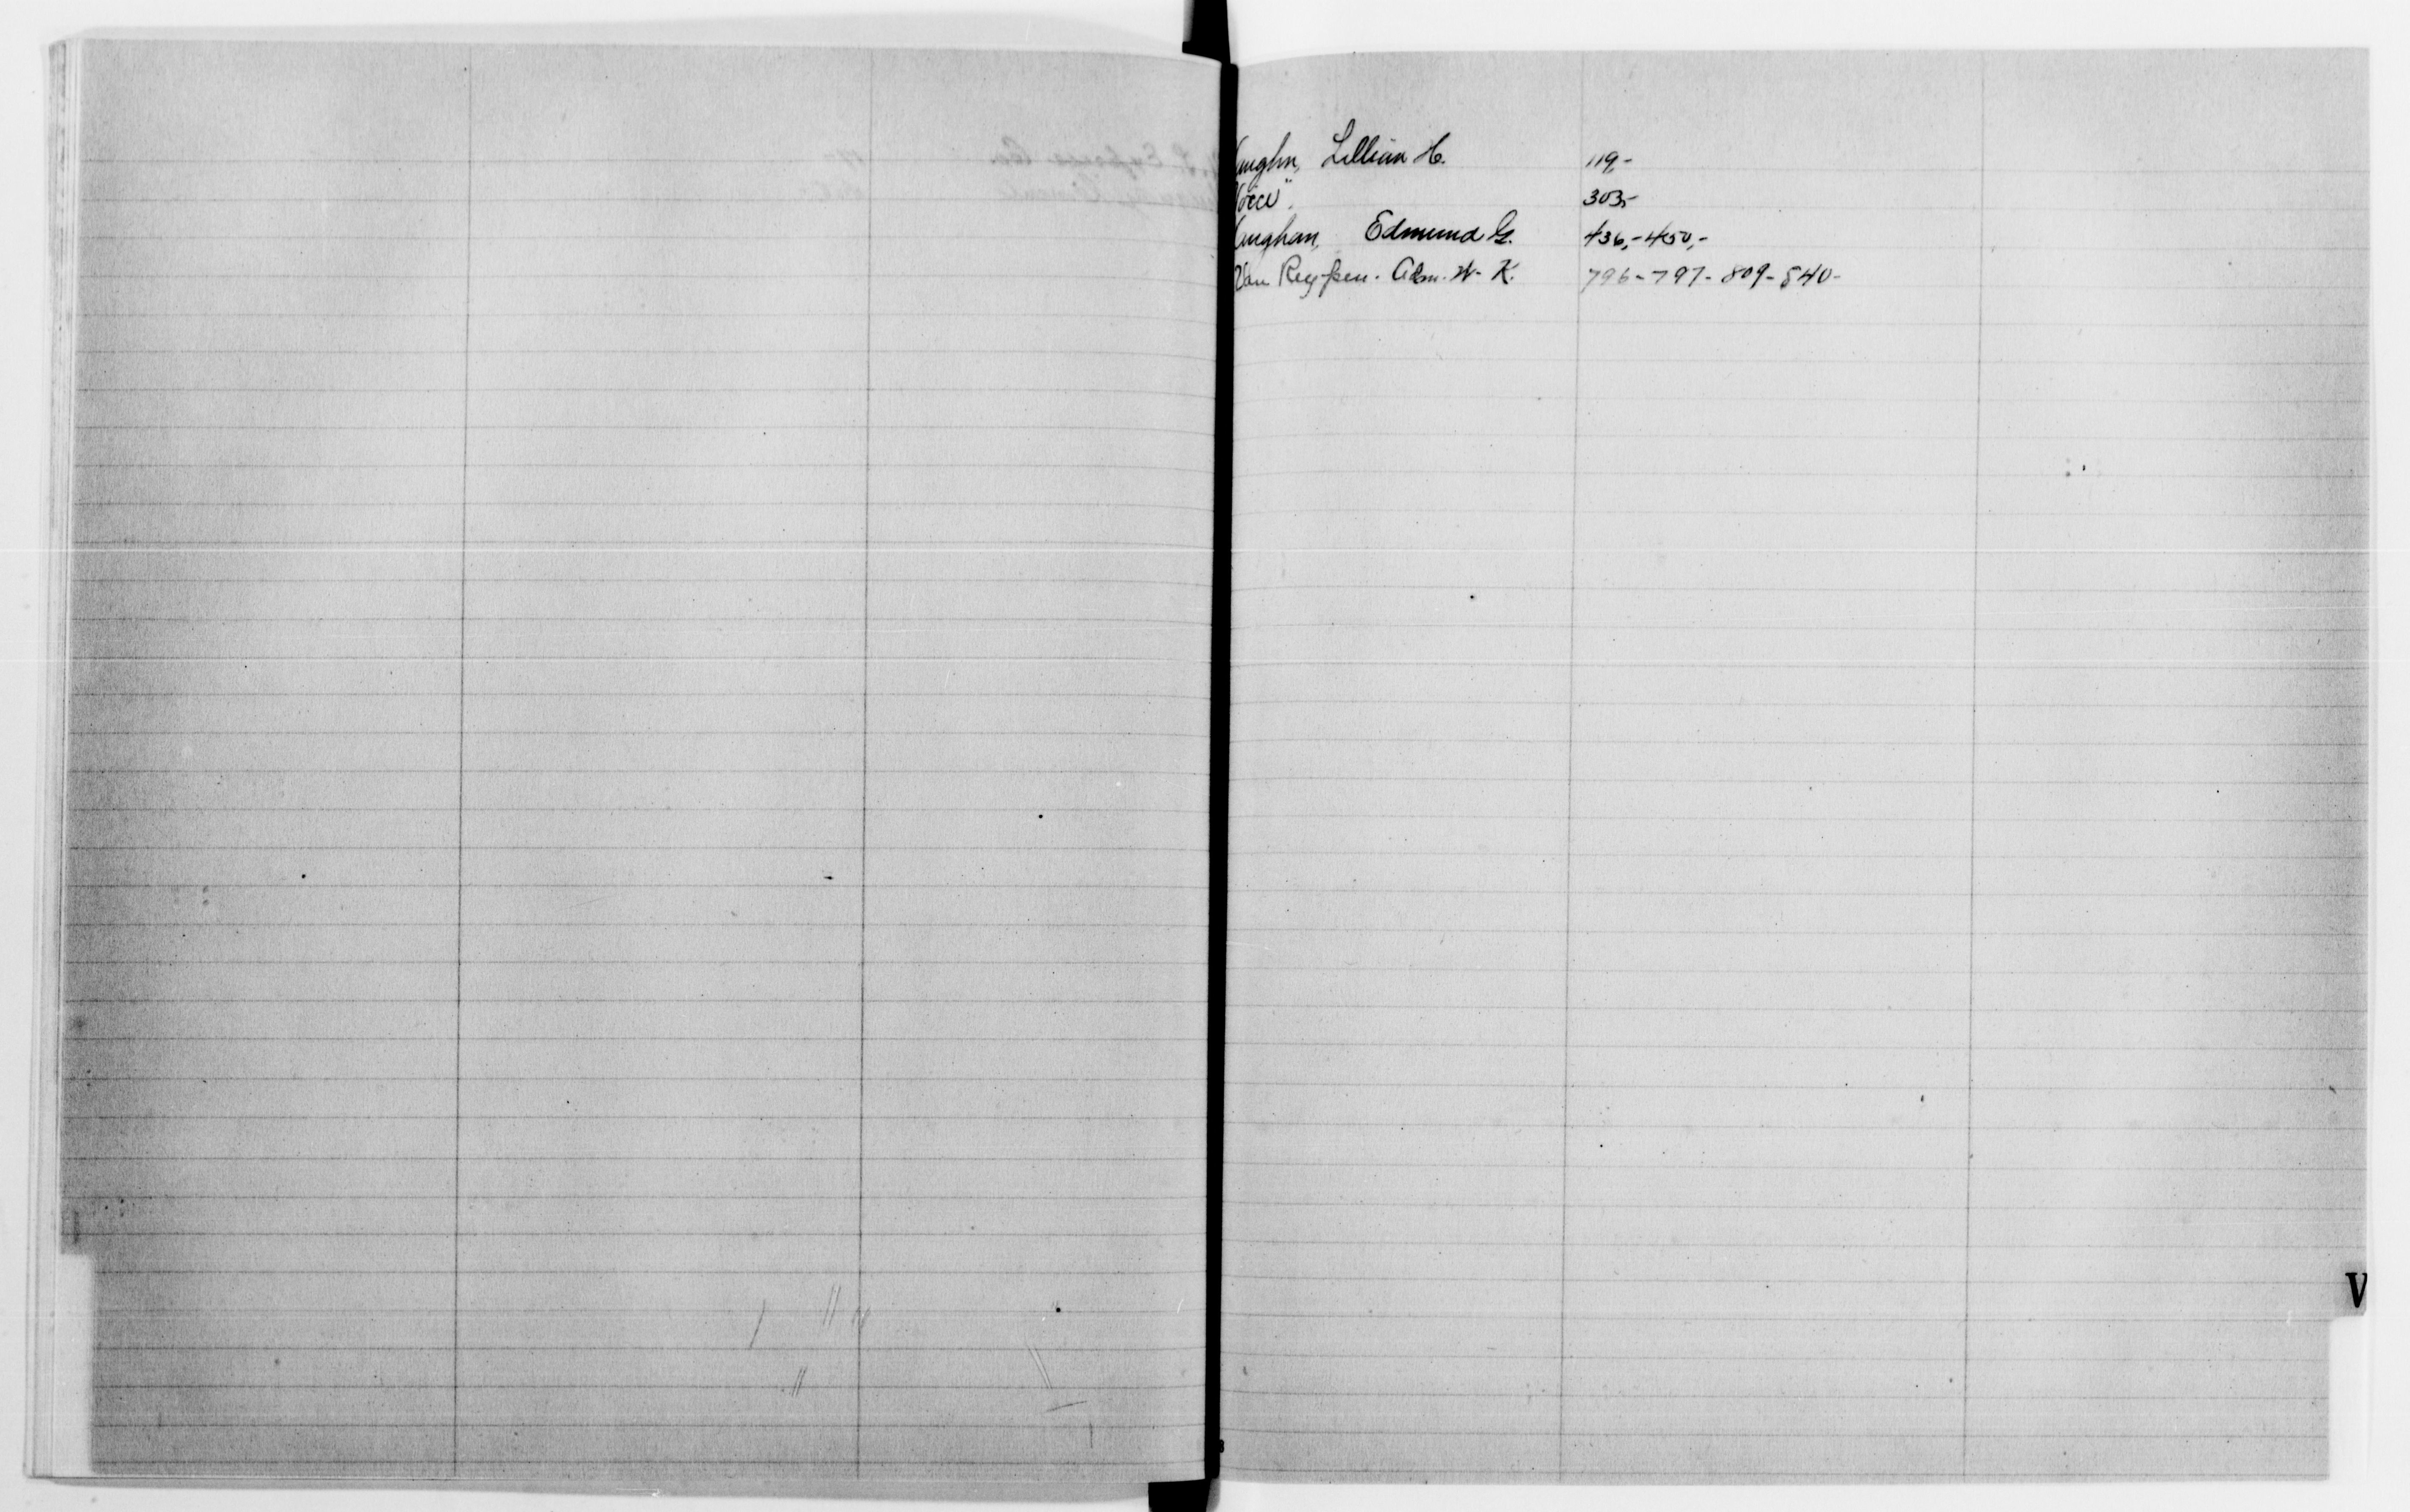 Vaughn, Lillian H. 119,-
"Voice". 303,-
Vaughan, Edmund G. 436,-450,-
Van Reypen. Adm. W. K. 796-797-809-840-
V